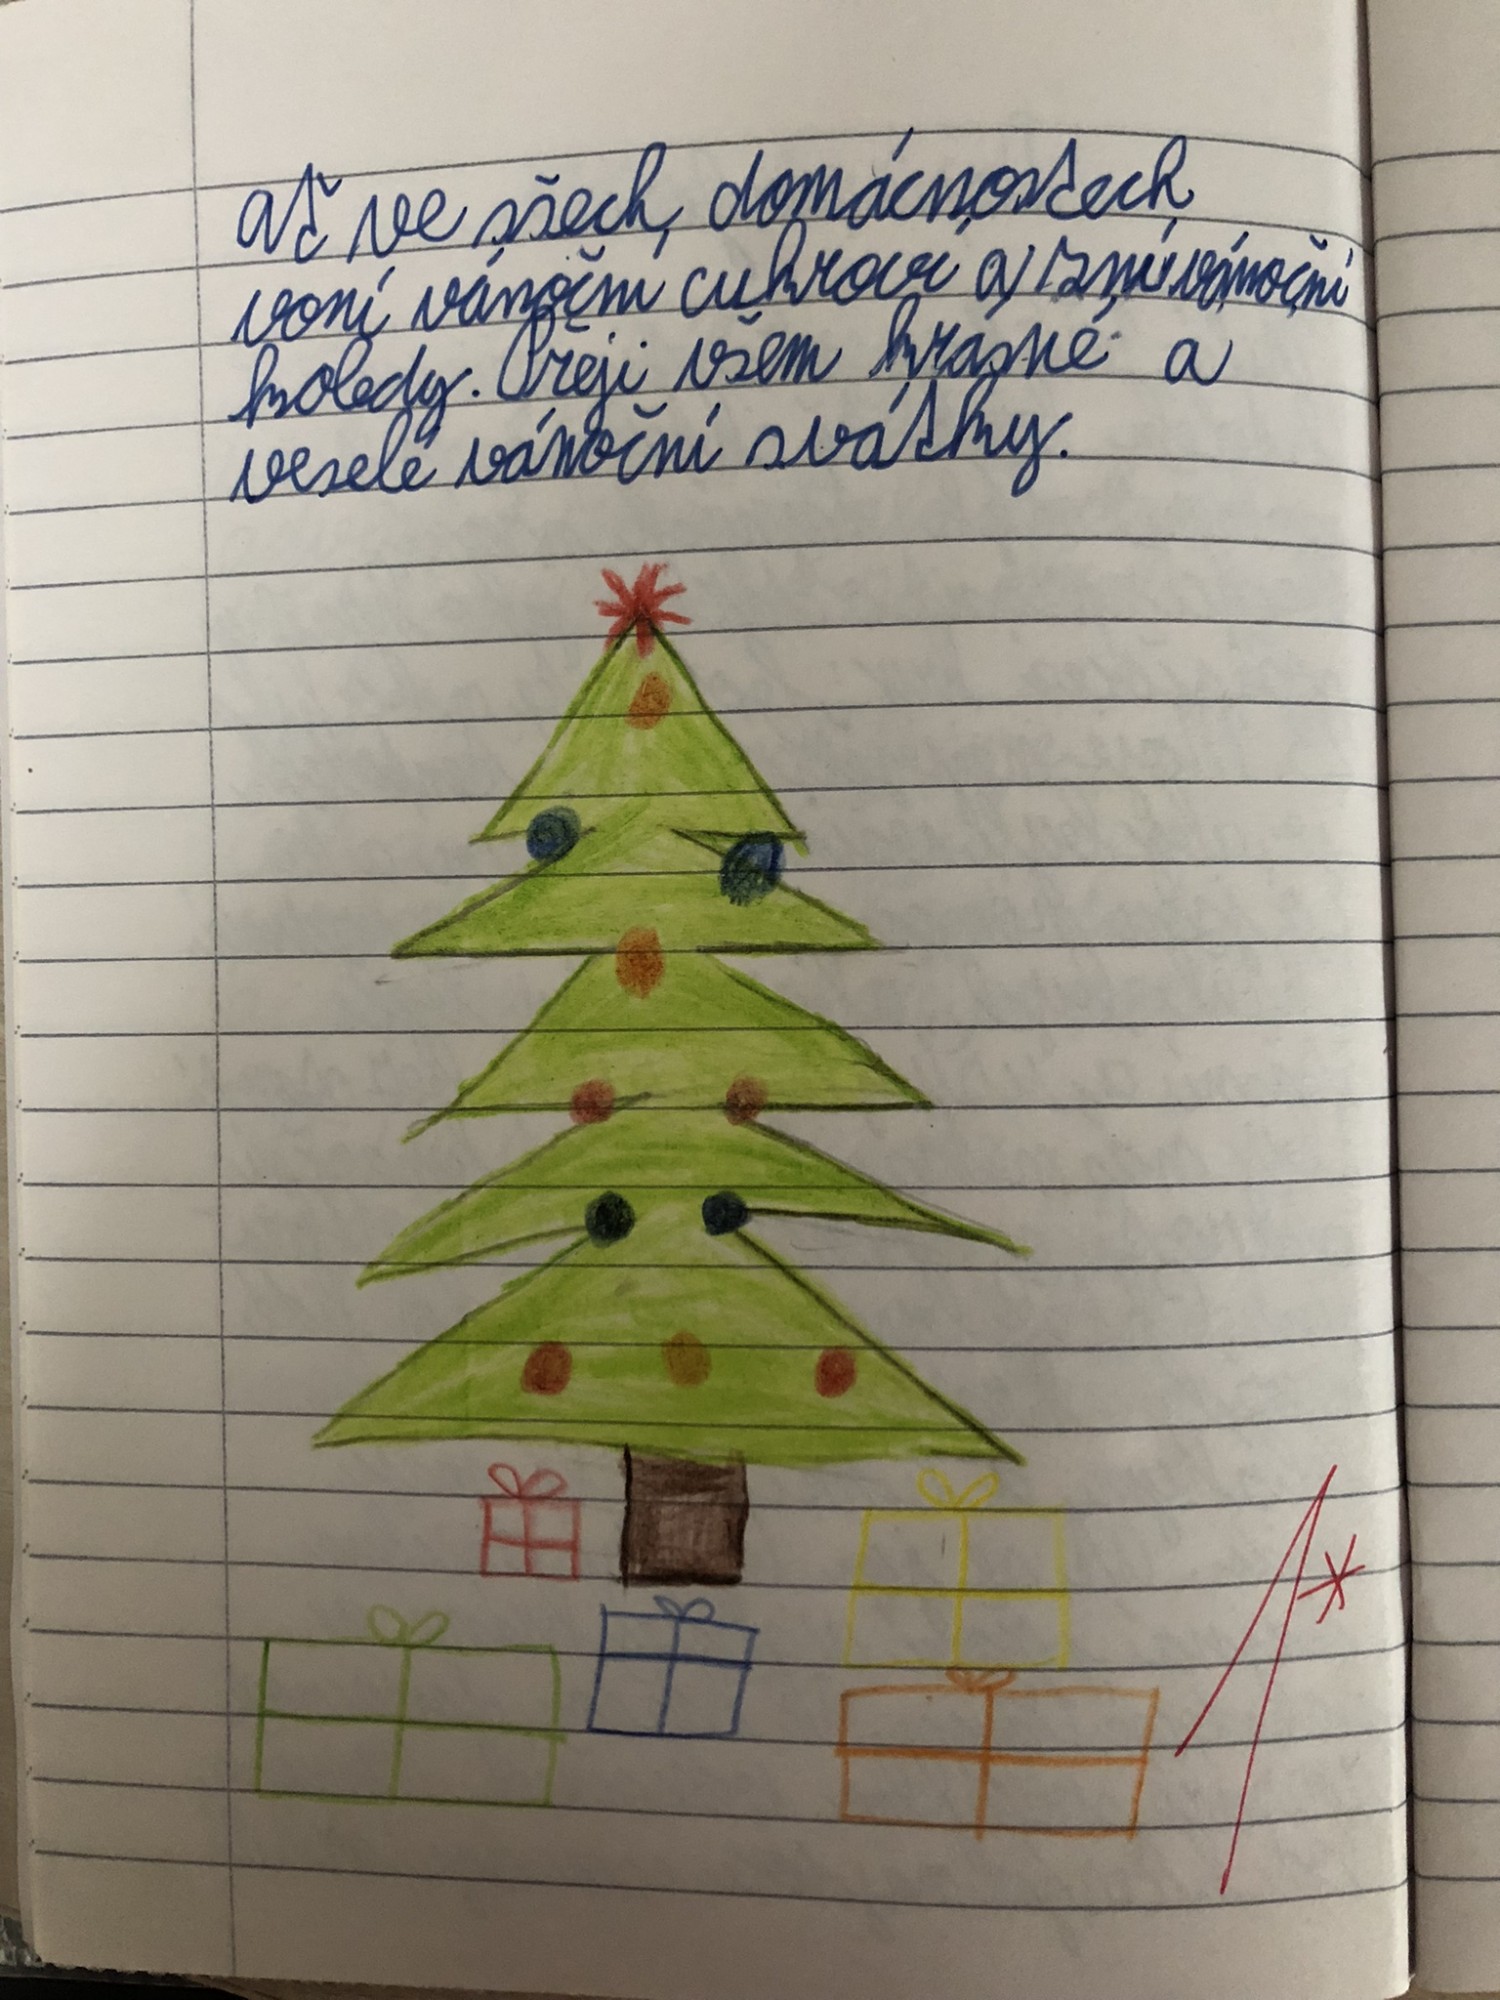 ať ve všech domácnostech
voní vánoční cukroví a zní vánoční
koledy. Přeji všem krásné a
veselé vánoční svátky.
1*